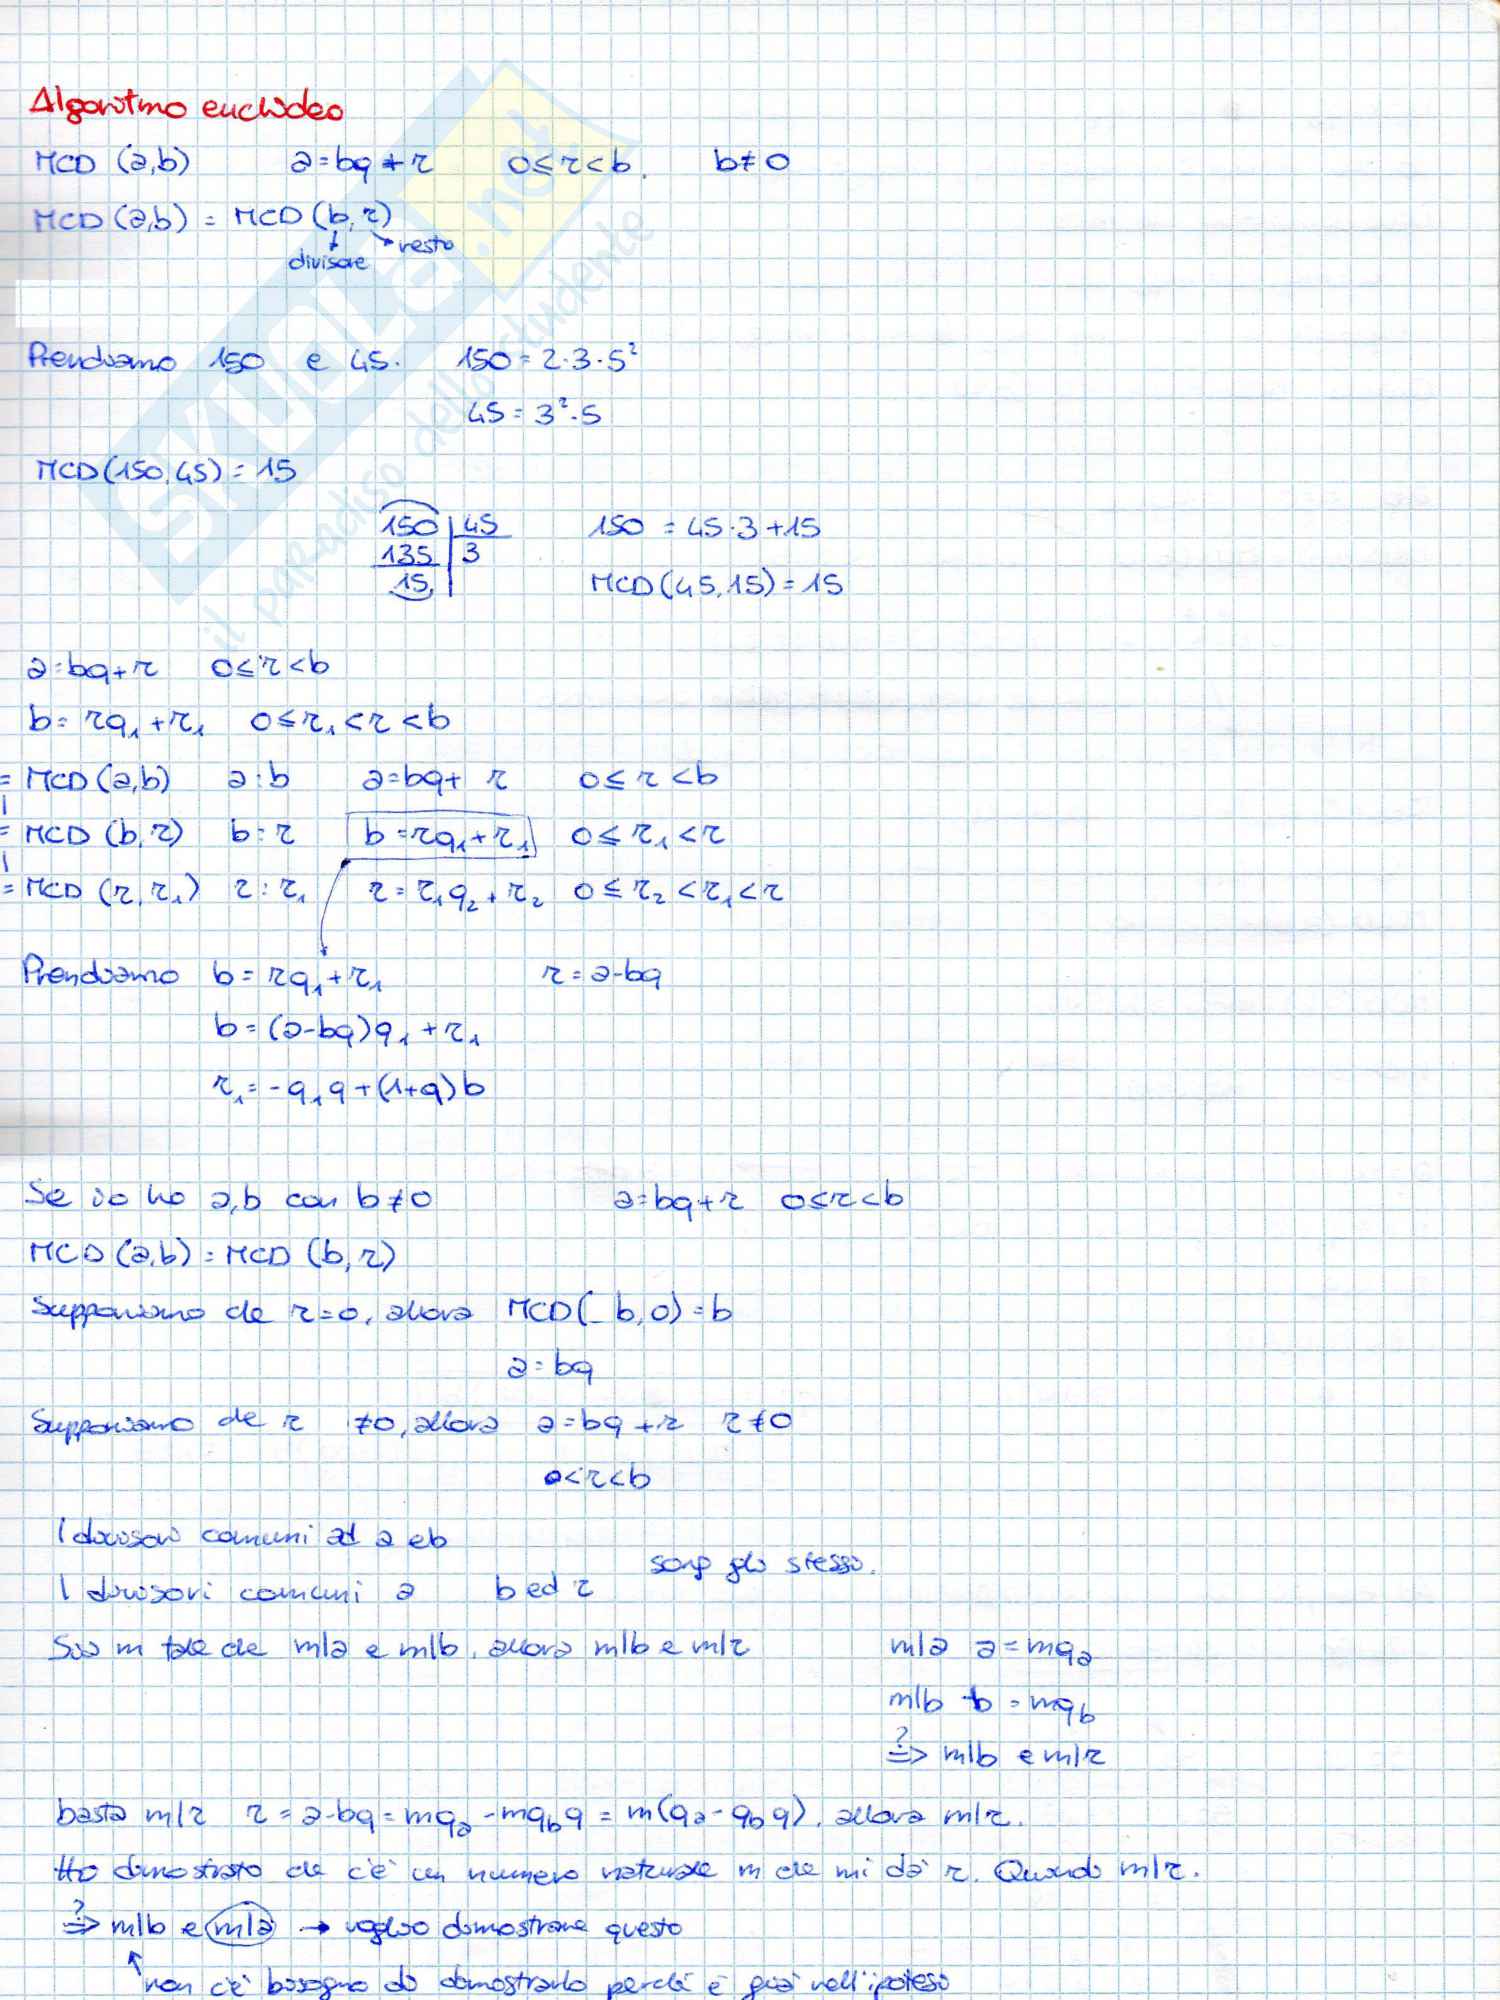 Algoritmo euclideo
MCD (a,b) a=bq+r 0≤r<b. b≠0
MCD (a,b) = MCD (b,r)
divisore resto
Prendiamo 150 e 45. 150=2·3·5²
45=3²·5
MCD(150,45)=15
150 45 150 = 45·3+15
135 3
15 MCD(45,15)=15
a=bq+r 0≤r<b
b=rq₁+r₁ 0≤r₁<r<b
= MCD (a,b) a:b a=bq+ r 0≤r<b
= MCD (b,r) b:r b=rq₁+r₁ 0≤r₁<r
= MCD (r,r₁) r:r₁ r=r₁q₂+r₂ 0≤r₂<r₁<r
Prendiamo b=rq₁+r₁ r=a-bq
b=(a-bq)q₁+r₁
r₁=-q₁q+(1+q)b
Se io ho a,b con b≠0 a=bq+r 0≤r<b
MCD (a,b)=MCD (b,r)
Supponiamo che r=0, allora MCD( b,0)=b
a=bq
Supponiamo che r ≠0, allora a=bq+r r≠0
0<r<b
I divisori comuni ad a e b
sono gli stessi.
I divisori comuni a b ed r
Sia m tale che m|a e m|b, allora m|b e m|r m|a a=mqₐ
m|b b=mq_b
?⇒ m|b e m|r
basta m|r r=a-bq=mqₐ-mq_bq=m(qₐ-q_bq), allora m|r.
Ho dimostrato che c'è un numero naturale m che mi dà r. Quando m|r.
?⇒ m|b e m|a → voglio dimostrare questo
non c'è bisogno di dimostrarlo perché è già nell'ipotesi
SKUOLA.net
il paradiso dello studente